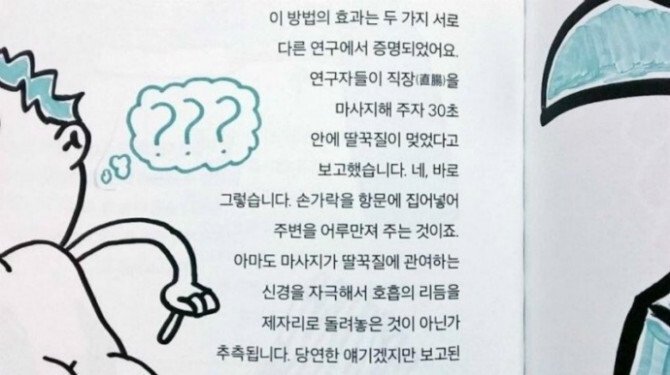 ???
이 방법의 효과는 두 가지 서로
다른 연구에서 증명되었어요.
연구자들이 직장(直腸)을
마사지해 주자 30초
안에 딸꾹질이 멎었다고
보고했습니다. 네, 바로
그렇습니다. 손가락을 항문에 집어넣어
주변을 어루만져 주는 것이죠.
아마도 마사지가 딸꾹질에 관여하는
신경을 자극해서 호흡의 리듬을
제자리로 돌려놓은 것이 아닌가
추측됩니다. 당연한 얘기겠지만 보고된